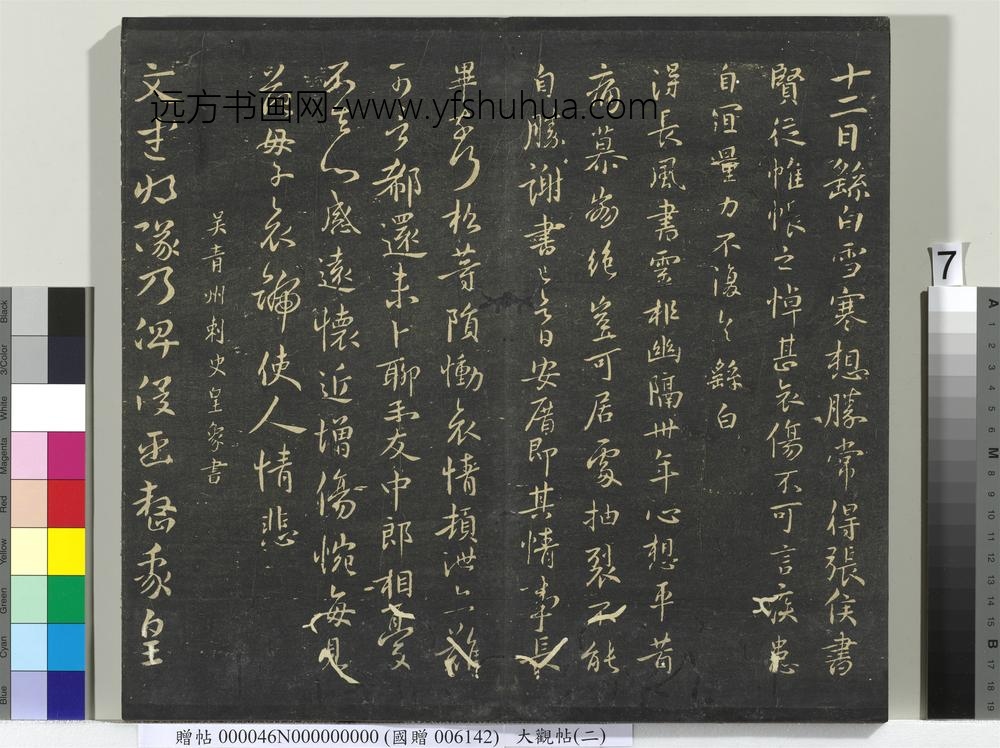 十二月繇白雪寒想勝常得張侯書
賢從帷帳之悼甚哀傷不可言疾患
自宜量力不復々繇白
得長風書靈柩幽隔卅年心想平昔
痛慕崩絕豈可居處抽裂不能
自勝謝書已令日安厝即其情事長
畢
松等隕慟哀情頓泄
可
郗還未卜聊
友中郎相憂
不去心感遠懷近增傷惋每見
子哀
使人情悲
吳青州刺史皇象書
文武將隊乃俾
象皇
远方书画网-www.yfshuhua.com
7
Black
3/Color
White
Magenta
Red
Yellow
Green
Cyan
Blue
A 1 2 3 4 5 6 M 8 9 10 11 12 13 14 15 B 17 18 19
贈帖 000046N000000000 (國贈 006142) 大觀帖(二)